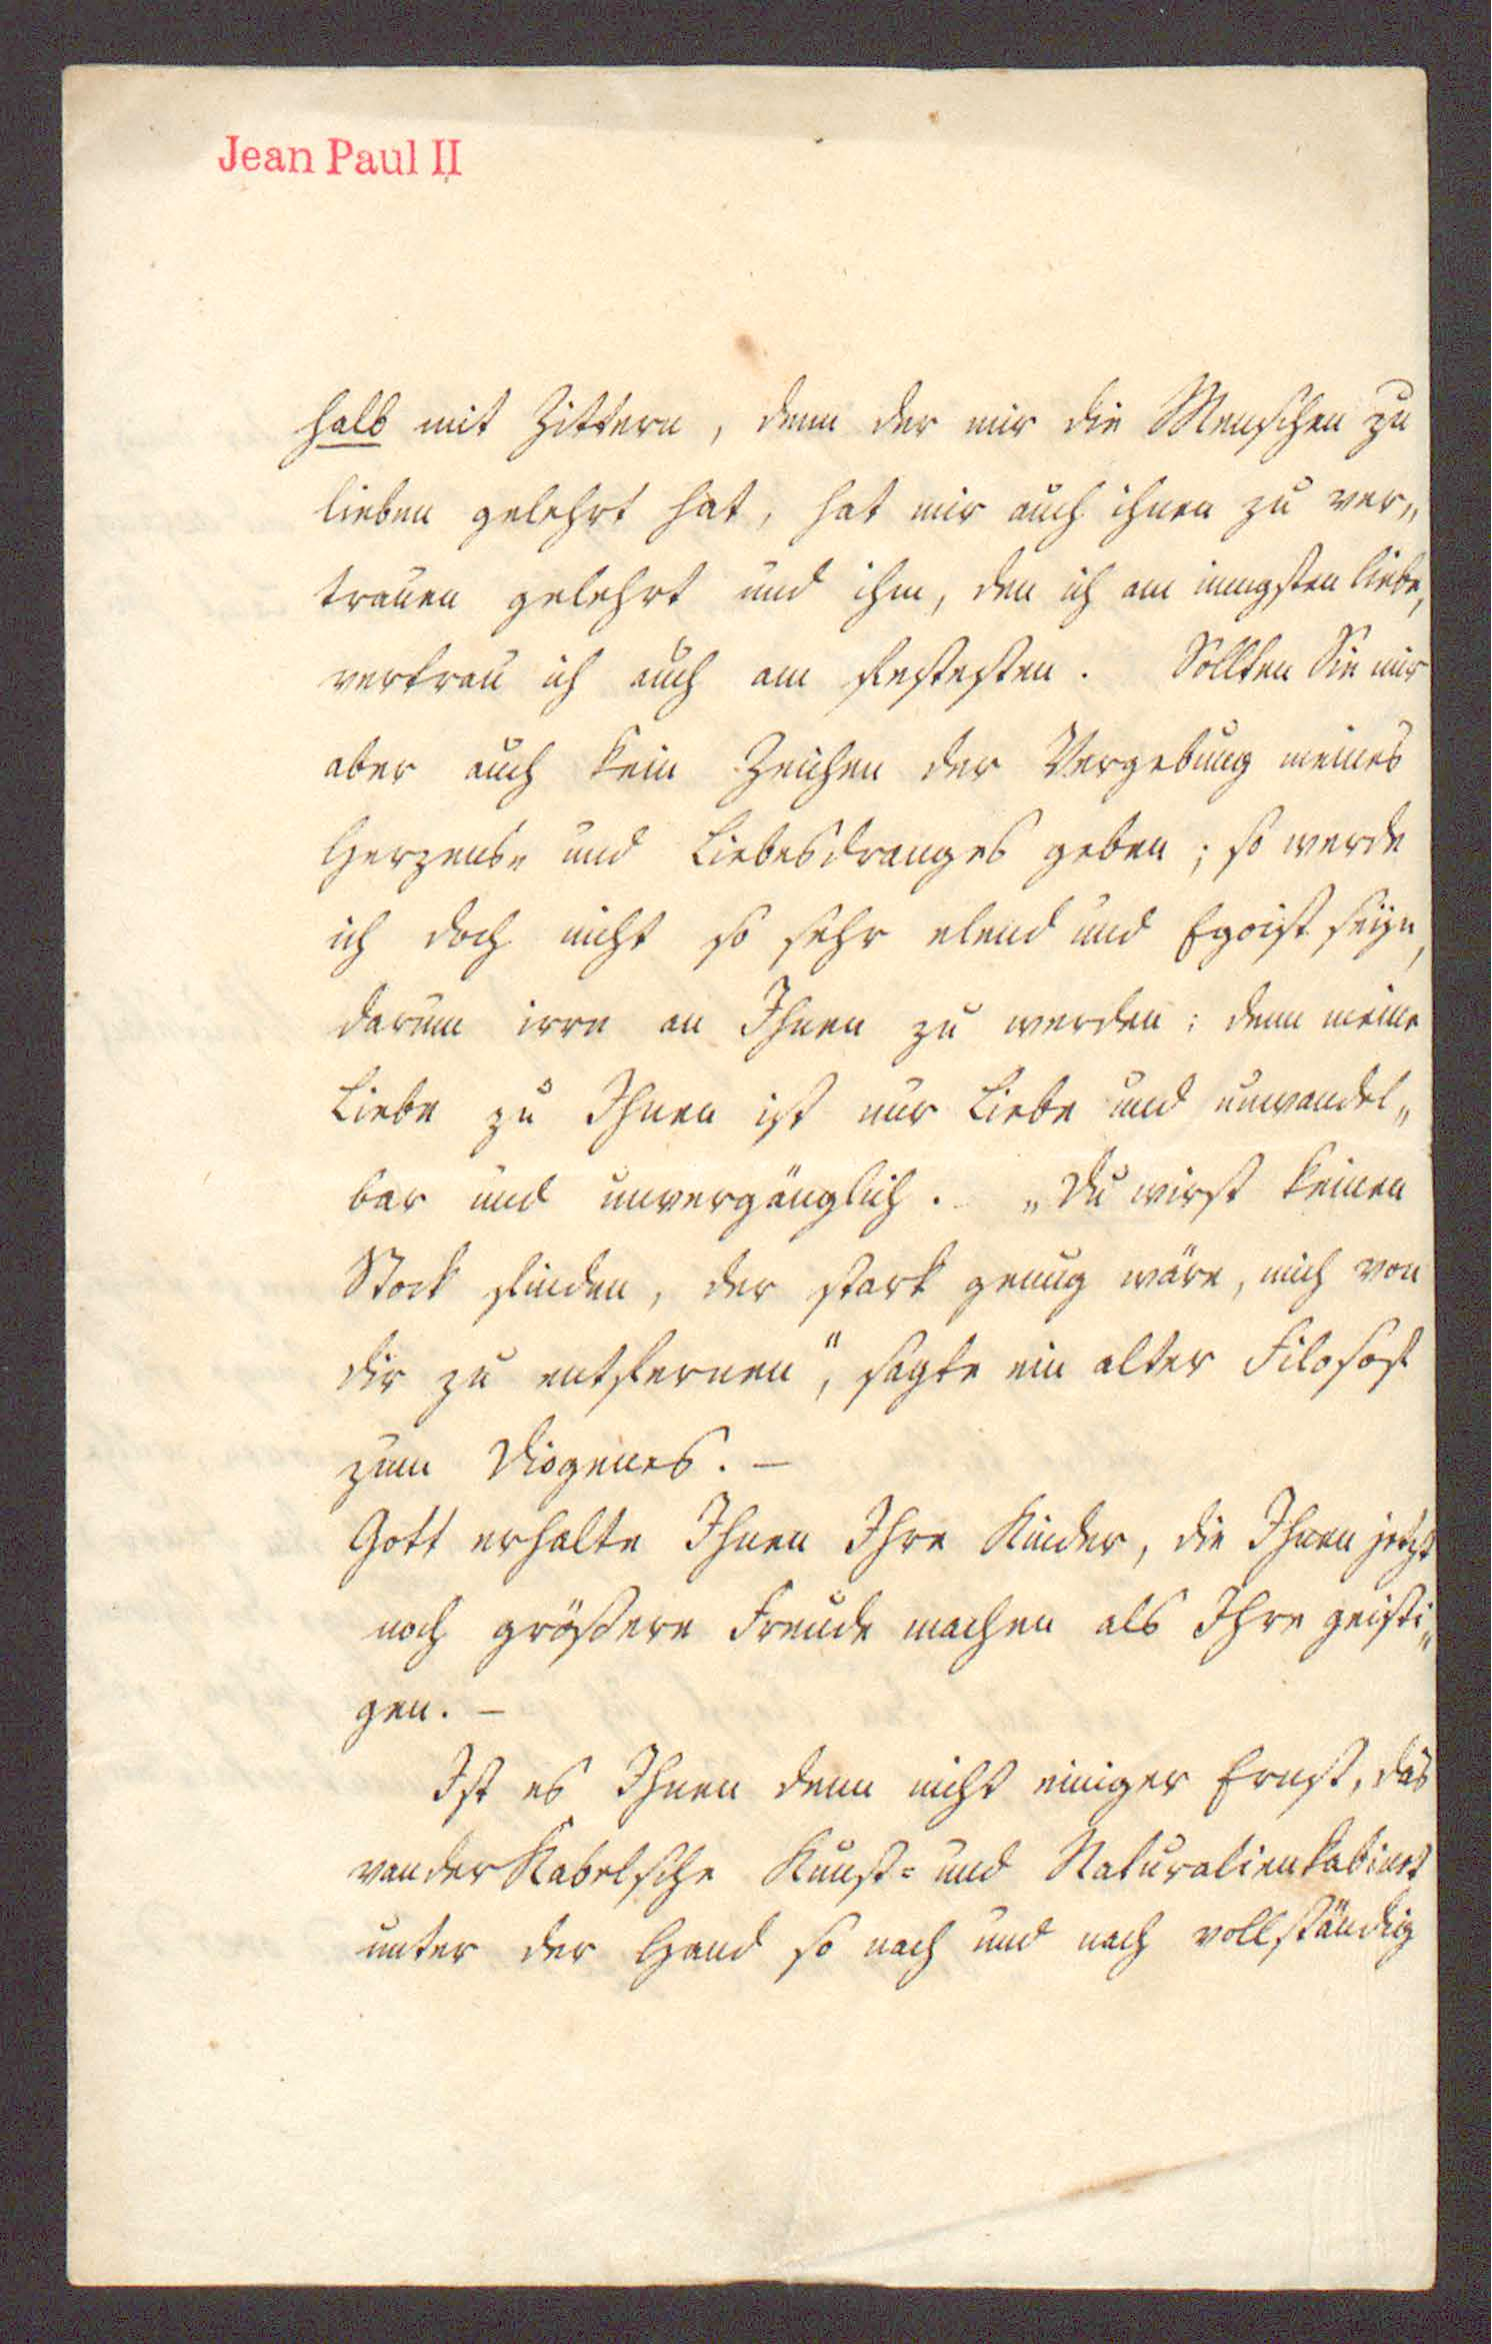 Jean Paul II
halb mit Zittern, denn der mir die Menschen zu
lieben gelehrt hat, hat mir auch ihnen zu ver„
trauen gelehrt und ihm, den ich am innigsten liebe,
vertrau ich auch am festesten. Sollten Sie mir
aber auch kein Zeichen der Vergebung meines
Herzens„ und Liebesdranges geben; so werde
ich doch nicht so sehr elend und Egoist seyn,
darum irre an Ihnen zu werden: denn meine
Liebe zu Ihnen ist nur Liebe und unwandel„
bar und unvergänglich. „Du wirst keinen
Stock finden, der stark genug wäre, mich von
dir zu entfernen“, sagte ein alter Filosof
zum Diogenes. —
Gott erhalte Ihnen Ihre Kinder, die Ihnen jetzt
noch größere Freude machen als Ihre geisti„
gen. —
Ist es Ihnen denn nicht einiger Ernst, das
van der Kabelsche Kunst= und Naturalienkabinet
unter der Hand so nach und nach vollständig